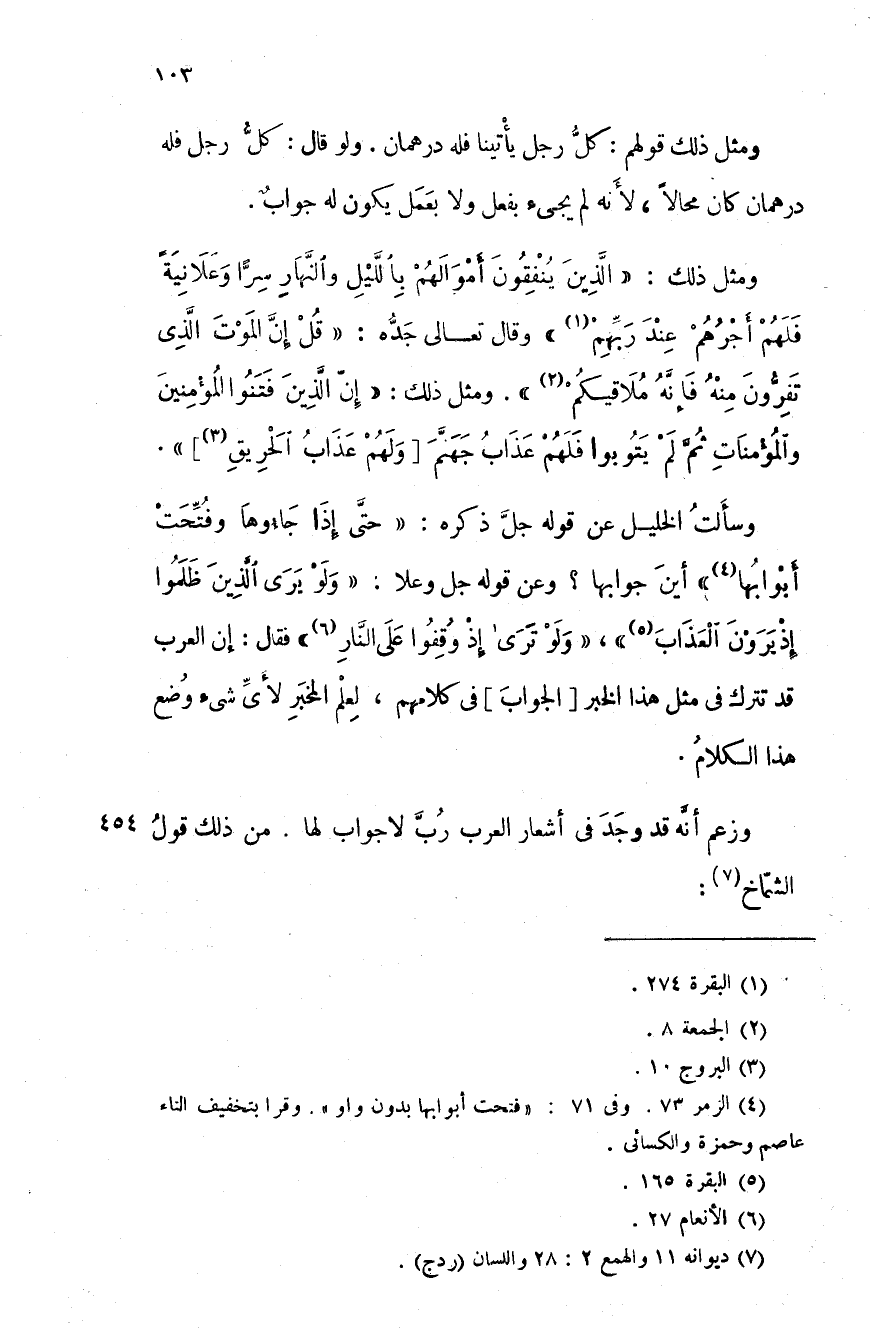 ١٠٣
ومثل ذلك قولهم : كلُّ رجل يأْتينا فله درهمان . ولو قال : كلُّ رجل فله
درهمان كان محالاً ، لأَنه لم يجىء بفعل ولا بعَمَل يكون له جوابٌ .
ومثل ذلك : « الَّذِينَ يُنْفِقُونَ أَمْوَالَهُمْ بِٱللَّيْلِ والنَّهَارِ سِرًّا وَعَلَانِيَةً
فَلَهُمْ أَجْرُهُمْ عِنْدَ رَبِّهِمْ (١) » وقال تعـالى جَدُّه : « قُلْ إِنَّ المَوْتَ الَّذِى
تَفِرُّونَ مِنْهُ فَإِنَّهُ مُلَاقِيكُمْ (٢) » . ومثل ذلك : « إِنّ الَّذِينَ فَتَنُوا المُؤْمِنِينَ
والمُؤْمنَاتِ ثُمَّ لَمْ يَتُوبوا فَلَهُمْ عَذَابُ جَهَنَّمَ [ وَلَهُمْ عَذَابُ ٱلْحَرِيقِ (٣) ] » .
وسأَلتُ الخليـل عن قوله جلَّ ذكره : « حتَّى إِذَا جَاءوهَا وفُتِّحَتْ
أَبْوابُها (٤) » أينَ جوابها ؟ وعن قوله جل وعلا : « وَلَوْ يَرَى ٱلَّذِينَ ظَلَمُوا
إِذْ يَرَوْنَ ٱلْعَذَابَ (٥) » ، « وَلَوْ تَرَىٰ إِذْ وُقِفُوا عَلَى النَّارِ (٦) » فقال : إن العرب
قد تترك فى مثل هذا الخبر [ الجوابَ ] فى كلامهم ، لعِلْم المخبَرِ لأَىِّ شىء وُضع
هذا الـكلامُ .
وزعم أنَّه قد وجَدَ فى أشعار العرب رُبَّ لاجواب لها . من ذلك قولُ ٤٥٤
الشمّاخ (٧) :
(١) البقرة ٢٧٤ .
(٢) الجمعة ٨ .
(٣) البروج ١٠ .
(٤) الزمر ٧٣ . وفى ٧١ : « فتحت أبوابها بدون واو » . وقرا بتخفيف التاء
عاصم وحمزة والكسائى .
(٥) البقرة ١٦٥ .
(٦) الأنعام ٢٧ .
(٧) ديوانه ١١ والهمع ٢ : ٢٨ واللسان (ردج) .